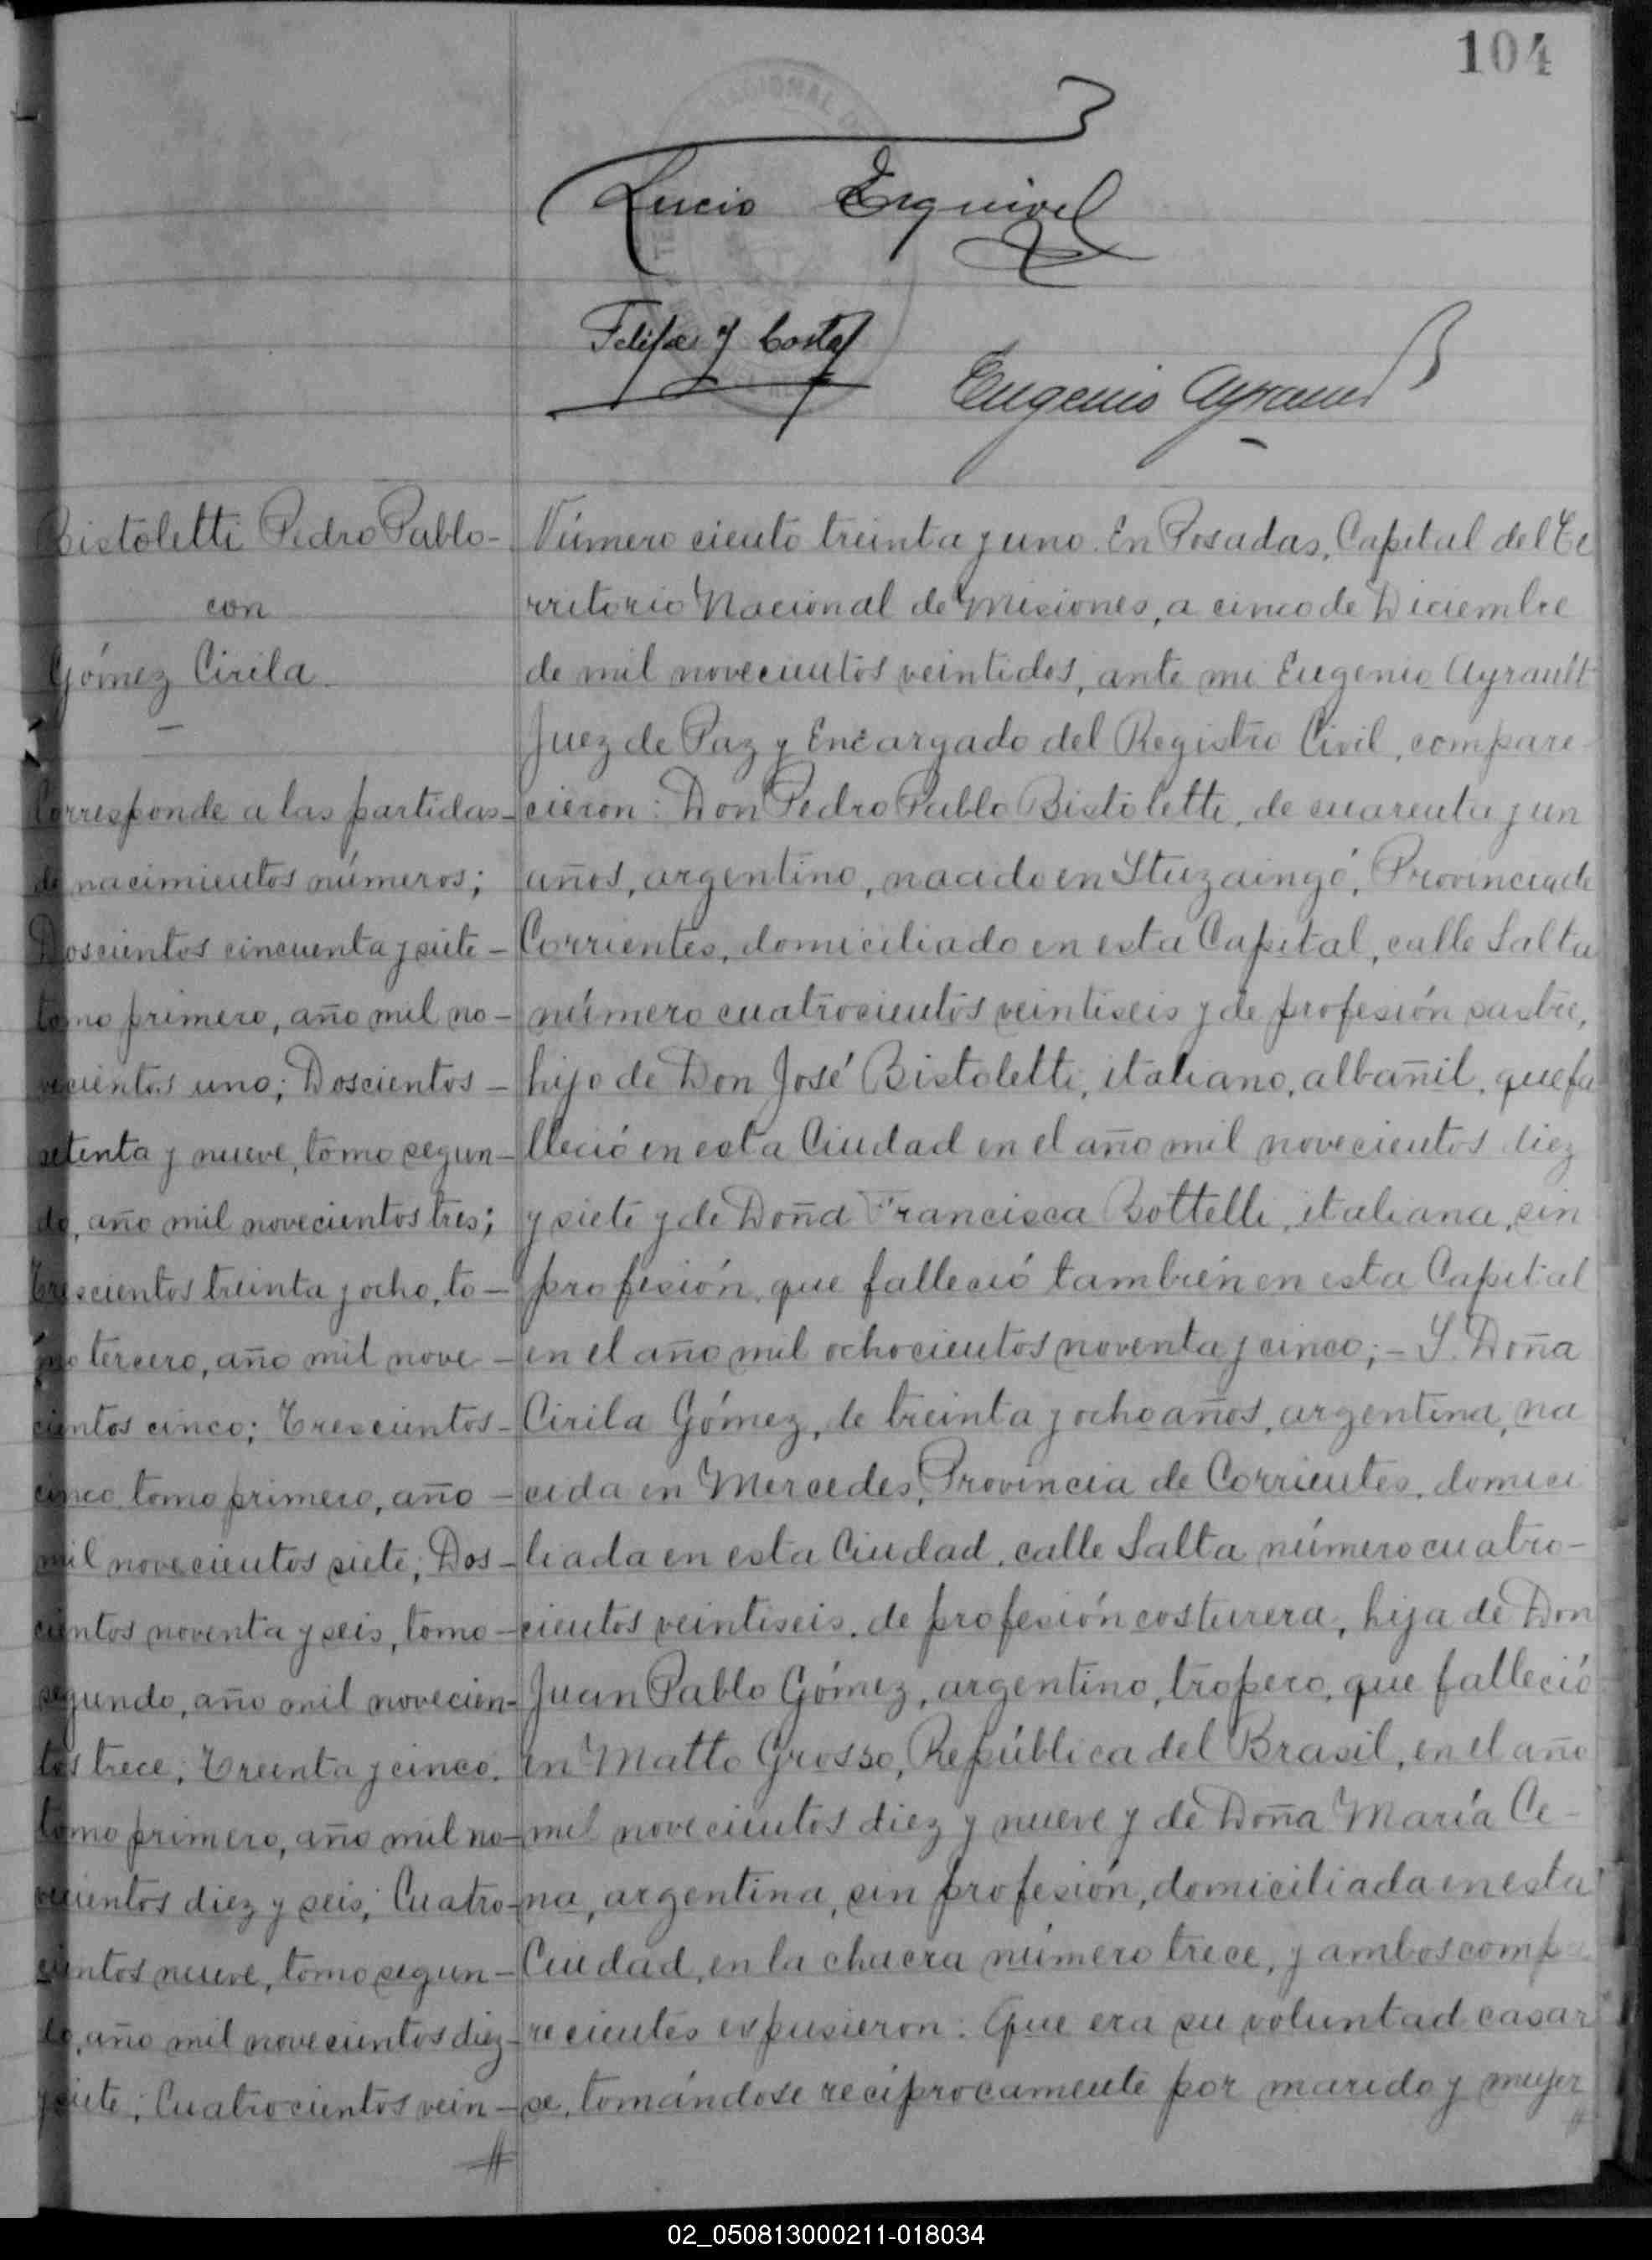 104
Lucio Esquivel
Felipe y Costa
Eugenio Ayrault
Bistoletti Pedro Pablo-
con
Gómez Cirila
Corresponde a las partidas-
de nacimientos números;
Doscientos cincuenta y siete-
tomo primero, año mil no-
vecientos uno; Doscientos-
setenta y nueve, tomo segun-
do, año mil novecientos tres;
Trescientos treinta y ocho, to-
mo tercero, año mil nove-
cientos cinco; Trescientos-
cinco tomo primero, año-
mil novecientos siete; Dos-
cientos noventa y seis, tomo-
segundo, año mil novecien-
tos trece; Treinta y cinco,
tomo primero, año mil no-
vecientos diez y seis; Cuatro-
cientos nueve, tomo segun-
do, año mil novecientos diez-
y siete; Cuatrocientos vein-
#
Número ciento treinta y uno. En Posadas, Capital del Te
rritorio Nacional de Misiones, a cinco de Diciembre
de mil novecientos veintidos, ante mi Eugenio Ayrault
Juez de Paz y Encargado del Registro Civil, compare-
cieron: Don Pedro Pablo Bistoletti, de cuarenta y un
años, argentino, nacido en Ituzaingó, Provincia de
Corrientes, domiciliado en esta Capital, calle Salta
número cuatrocientos veintiseis y de profesión sastre,
hijo de Don José Bistoletti, italiano, albañil, que fa
lleció en esta Ciudad en el año mil novecientos diez
y siete y de Doña Francisca Bottelli, italiana, sin
profesión, que falleció también en esta Capital
en el año mil ochocientos noventa y cinco;- Y Doña
Cirila Gómez, de treinta y ocho años, argentina, na
cida en Mercedes, Provincia de Corrientes, domici
liada en esta Ciudad, calle Salta número cuatro-
cientos veintiseis, de profesión costurera, hija de Don
Juan Pablo Gómez, argentino, tropero, que falleció
en Matto Grosso, República del Brasil, en el año
mil novecientos diez y nueve y de Doña María Ce-
na, argentina, sin profesión, domiciliada en esta
Ciudad, en la chacra número trece, y ambos compa
recientes expusieron: Que era su voluntad casar
se, tomándose recíprocamente por marido y mujer
#
02_050813000211-018034